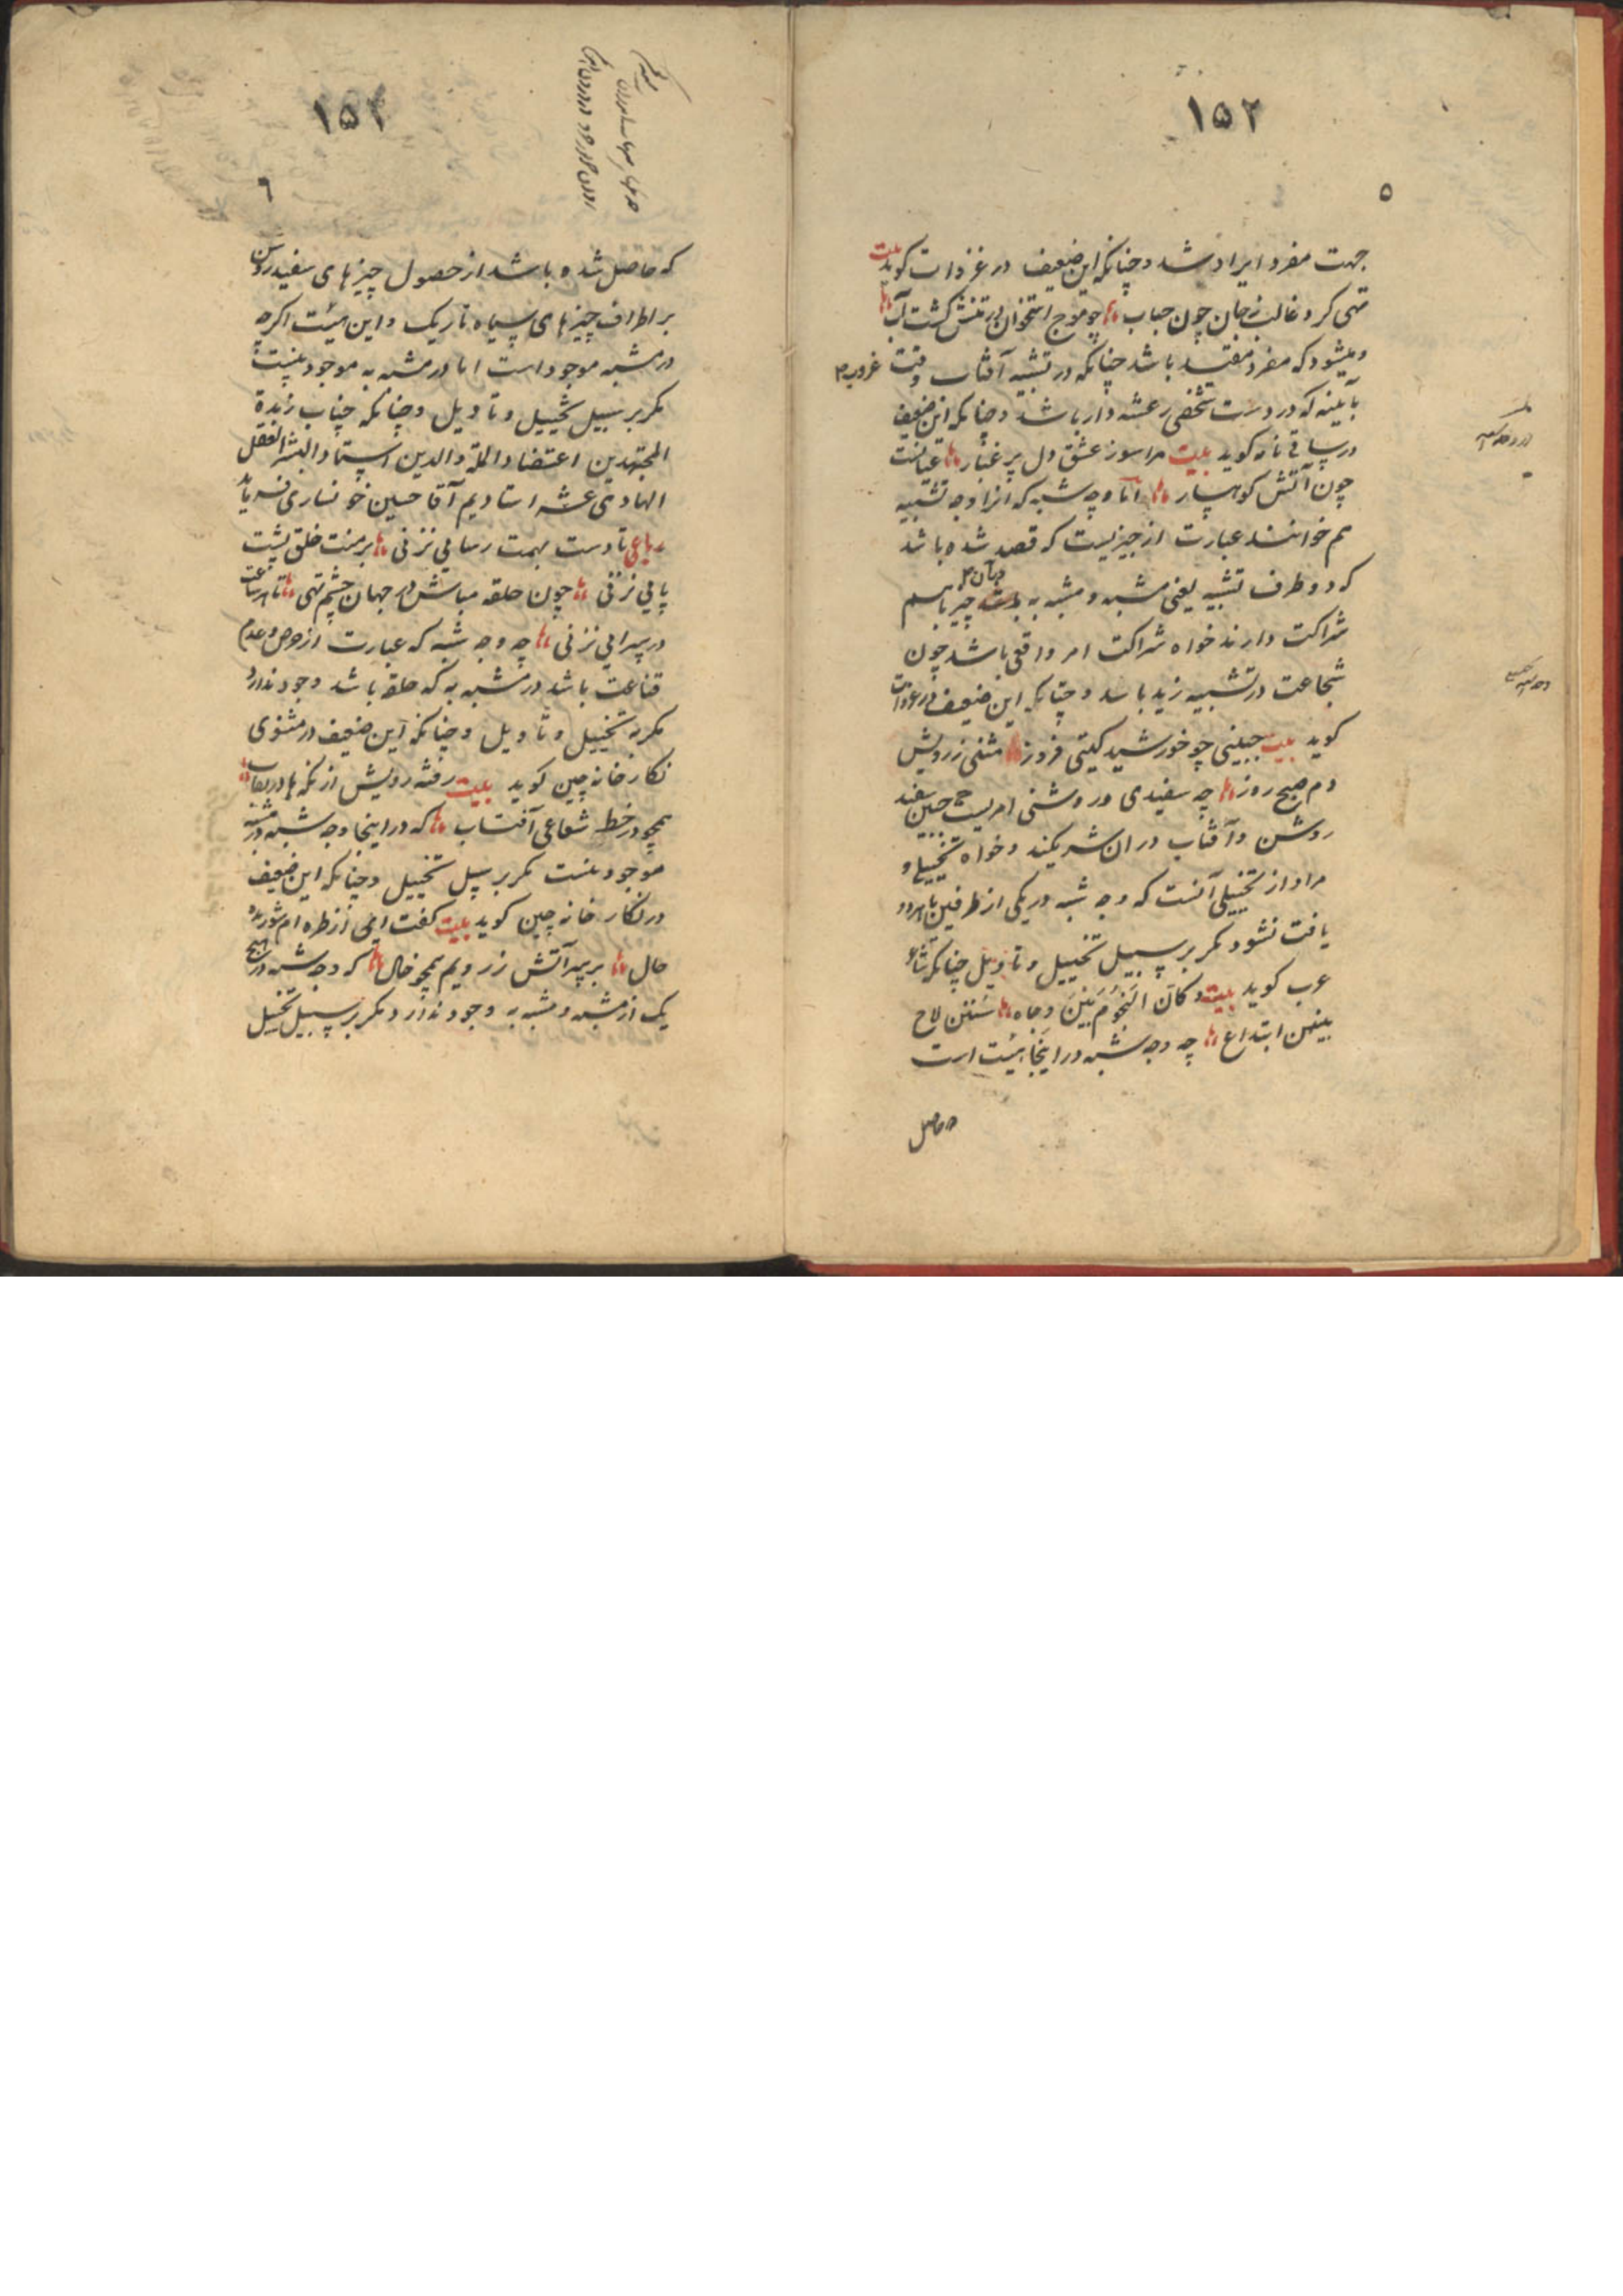 ۱۵۲
۵
جهت مفرد ایراد شد و چنانکه این ضعیف در غزوات کوید بیت
تهی کرد غالب ز جان چون حباب چو موج استخوان در تنش کشت آب
و میشود که مفرد مقید باشد چنانکه در تشبیه آفتاب وقت غروب
بآیینه که در دست شخصی رعشه دار باشد و چنانکه این ضعیف
در ساقی نامه کوید بیت مرا سوز عشق دل پر غبار عیانست
چون آتش کوهسار اما وجه شبه که انرا وجه تشبیه
هم خوانند عبارت از چیزیست که قصد شده باشد
که دو طرف تشبیه یعنی مشبه و مشبه به در آن چیز باهم
شراکت دارند خواه شراکت امر واقعی باشد چون
شجاعت در تشبیه زید باسد و چنانکه این ضعیف در غزوات
کوید بیت جبینی چو خورشید کیتی فروز مثنی ز رویش
دم صبح روز چه سفیدی و روشنی امریست جبین سفید
روشن و آفتاب در ان شریکند و خواه تخییلی و
مراد از تخییلی آنست که وجه شبه در یکی از طرفین یا هردو
یافت نشود مکر بر سبیل تخییل و تاویل چنانکه شاعر
عرب کوید بیت و کان النجوم بین دجاه سنن لاح
بینهن ابتداع چه وجه شبه در اینجا هیئت است
حاصل
۱۵۲
۶
که حاصل شده باشد از حصول چیزهای سفید روشن
بر اطراف چیزهای سیاه تاریک و این هیئت اکرچه
در مشبه موجود است اما در مشبه به موجود نیست
مکر بر سبیل تخییل و تاویل و چنانکه جناب زبدة
المجتهدین اعتضاد الملة والدین استاد البشر العقل
الهادی عشر استادیم آقا حسین خونساری فرماید
رباعی تا دست بهمت رسایی نزنی بر منت خلق پشت
پایی نزنی چون حلقه مباش در جهان چشم تهی تا قناعت
در سرایی نزنی چه وجه شبه که عبارت از حرص و عدم
قناعت باشد در مشبه به که حلقه باشد وجود ندارد
مکر به تخییل و تاویل و چنانکه این ضعیف در مثنوی
نکارخانه چین کوید بیت رفته رویش از نکه ها در نقاب
همچو در خط شعاعی آفتاب که در اینجا وجه شبه در مشبه
موجود نیست مکر بر سبیل تخییل و چنانکه این ضعیف
در نکارخانه چین کوید بیت کفت ای از طره ام شوریده
حال بر سر آتش ز رویم همچو خال که وجه شبه در هیچ
یک از مشبه و مشبه به وجود ندارد مکر بر سبیل تخییل